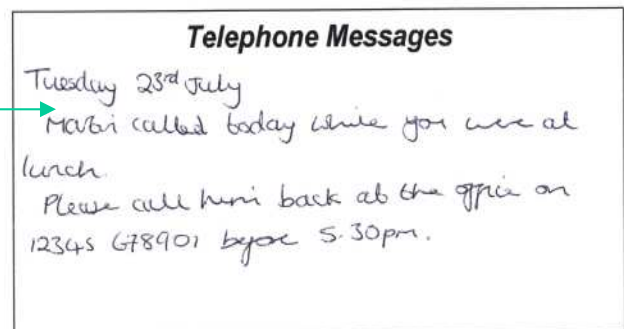 Telephone Messages
Tuesday 23rd July
Martin called today while you were at
lunch.
Please call him back at the office on
12345 678901 before 5.30pm.